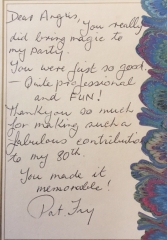 Dear Angus,
You really
did bring magic to
my party.
You were just so good
– Quite professional
and FUN!
Thankyou so much
for making such a
fabulous contribution
to my 80th.
You made it
memorable!
Pat